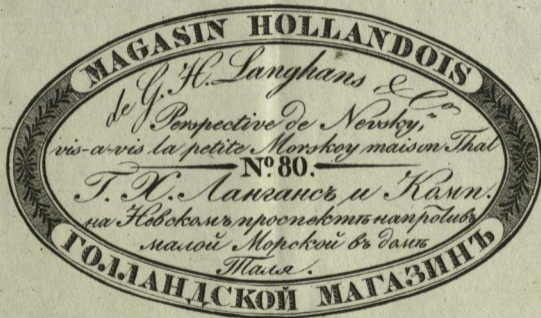 MAGASIN HOLLANDOIS
de G. H. Langhans & Co
Perspective de Nevsky,
vis-a-vis la petite Morskoy maison Thal
No. 80.
Г. Х. Лангансъ и Комп.
на Невскомъ проспектѣ напротивъ
малой Морской въ домѣ
Таля.
ГОЛЛАНДСКОЙ МАГАЗИНЪ